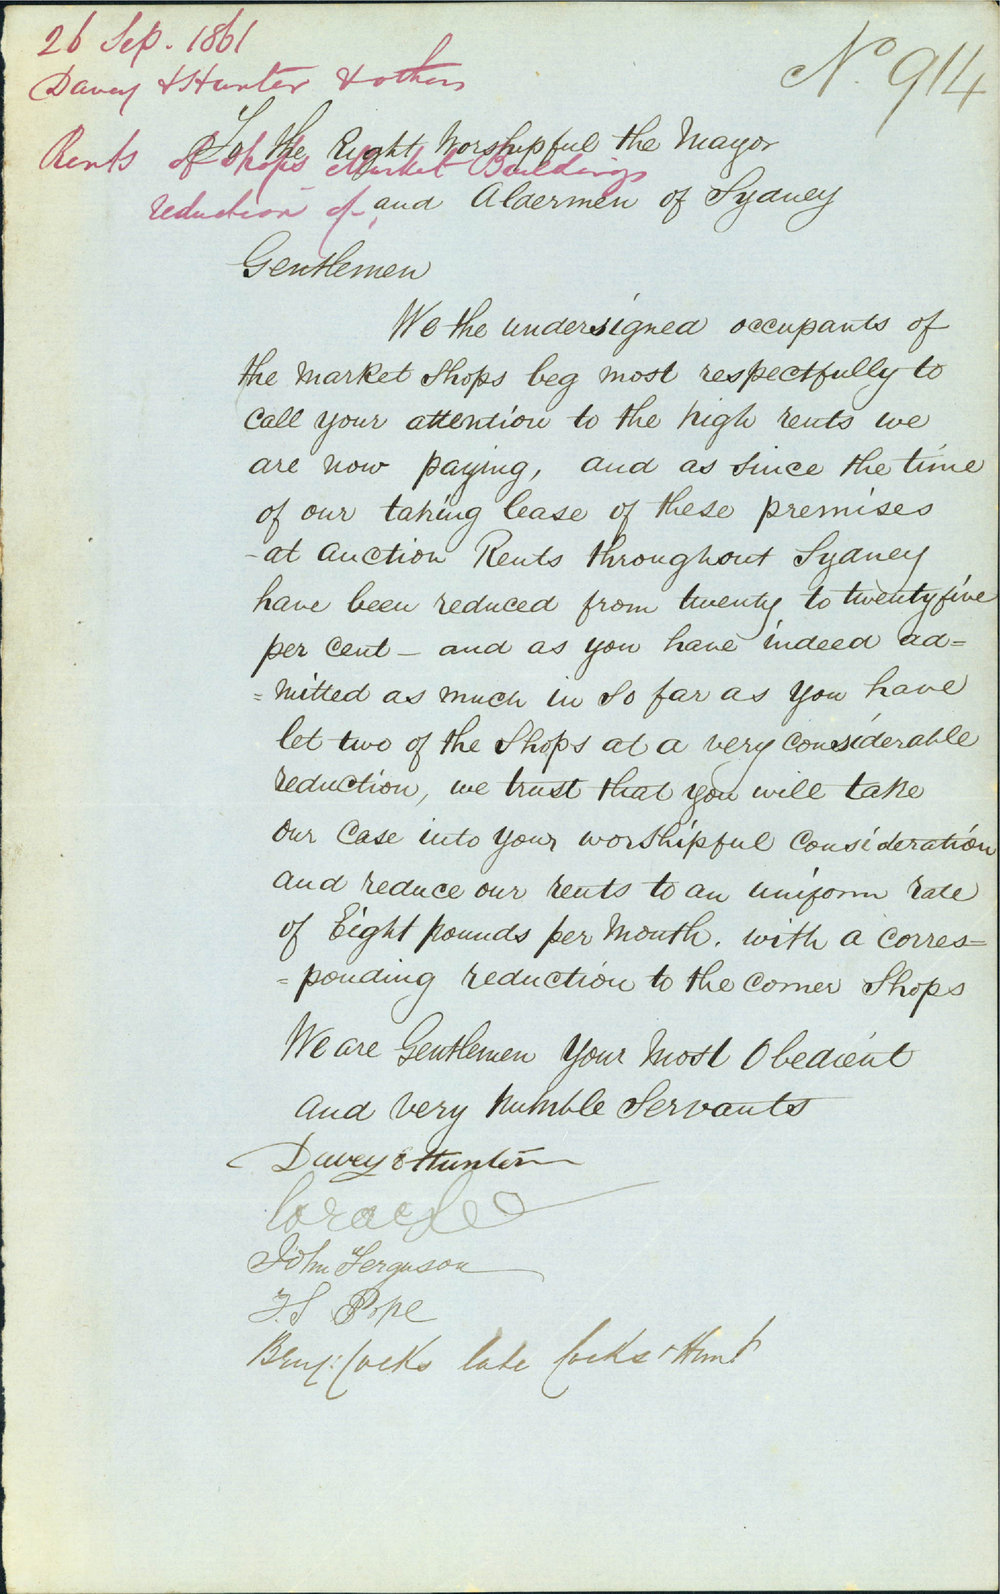 26 Sep. 1861
Davey & Hunter & others
No. 914
Rents of Shops Market Buildings
reduction of
To the Right Worshipful the Mayor
and Aldermen of Sydney
Gentlemen
We the undersigned occupants of
the Market Shops beg most respectfully to
call your attention to the high rents we
are now paying, and as since the time
of our taking lease of these premises
- at auction Rents throughout Sydney
have been reduced from twenty to twentyfive
per cent - and as you have indeed ad=
=mitted as much in so far as you have
let two of the Shops at a very considerable
reduction, we trust that you will take
our case into your worshipful consideration
and reduce our rents to an uniform rate
of Eight pounds per Month. with a corres=
=ponding reduction to the corner Shops
We are Gentlemen Your Most Obedient
and very humble Servants
Davey & Hunter
John Ferguson
F. S Pope
Benj: Cocks late Cocks & Hunt